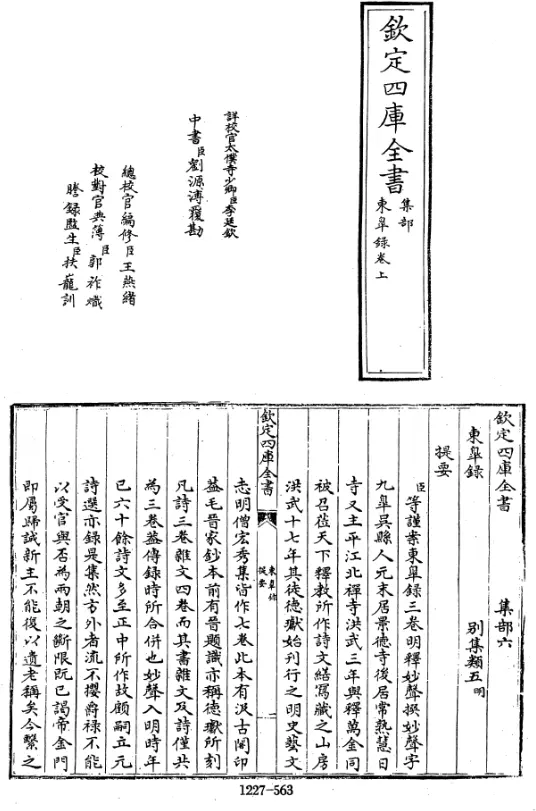 欽定四庫全書
集部
東臯錄卷上
詳校官太僕寺少卿臣李廷欽
中書臣劉源溥覆勘
總校官編修臣王燕緒
校對官典簿臣郭祚熾
謄錄監生臣扶龎訓
欽定四庫全書 集部六
東臯錄 别集類五明
提要
臣等謹案東臯錄三卷明釋妙聲撰妙聲字
九臯吳縣人元末居景德寺後居常熟慧日
寺又主平江北禪寺洪武三年與釋萬金同
被召莅天下釋教所作詩文結寫藏之山房
洪武十七年其徒徳瓛始刊行之明史藝文
欽定四庫全書
東臯錄
提要
一
志明僧宏秀集皆作七卷此本有汲古閣印
葢毛晉家鈔本前有晉題識亦稱徳瓛所刻
凡詩三卷雜文四卷而其書雜文及詩僅共
為三卷葢傳錄時所合併也妙聲入明時年
已六十餘詩文多至正中所作故顧嗣立元
詩選亦録是集然方外者流不攖爵禄不能
以受官與否為兩朝之斷限既已謁帝金門
即屬歸誠新主不能復以遺老稱矣今繫之
1227-563